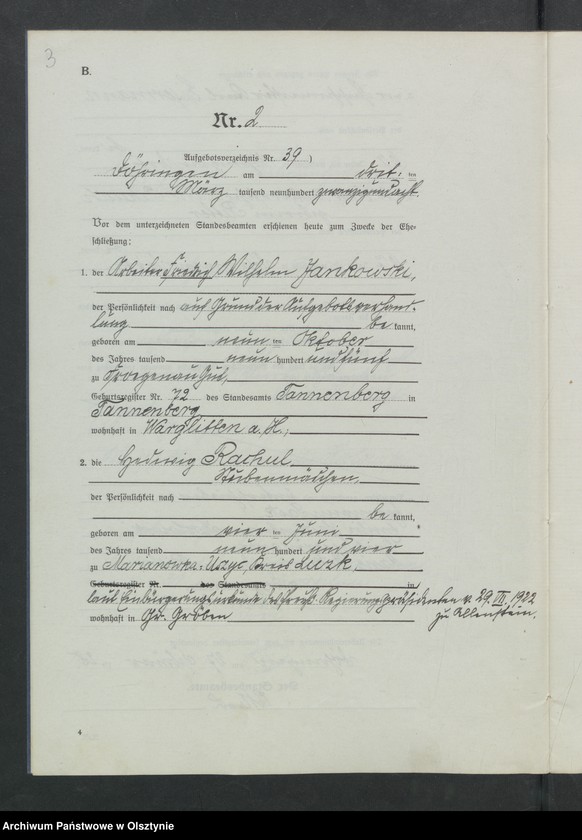 3
B.
Nr. 2
Aufgebotsverzeichnis Nr. 39)
Döhringen am drit- ten
März tausend neunhundert zwanzigundacht.
Vor dem unterzeichneten Standesbeamten erschienen heute zum Zwecke der Ehe-
schließung:
1. der Arbeiter Friedrich Wilhelm Jankowski,
der Persönlichkeit nach auf Grund der Aufgebotsverhand-
lung be kannt,
geboren am neun ten Oktober
des Jahres tausend neun hundert und fünf
zu Groegenau Gut,
Geburtsregister Nr. 72 des Standesamts Tannenberg in
Tannenberg
wohnhaft in Warglitten a. H.;
2. die Hedwig Rachul
Stubenmädchen,
der Persönlichkeit nach
be kannt,
geboren am vier ten Juni
des Jahres tausend neun hundert und vier
zu Marianowka, Kreis Luzk,
Geburtsregister Nr. des Standesamts in
laut Einbürgerungsurkunde des Regierungspräsidenten v. 29. VII. 1922
zu Allenstein.
wohnhaft in Gr. Gröben
4
Archiwum Państwowe w Olsztynie